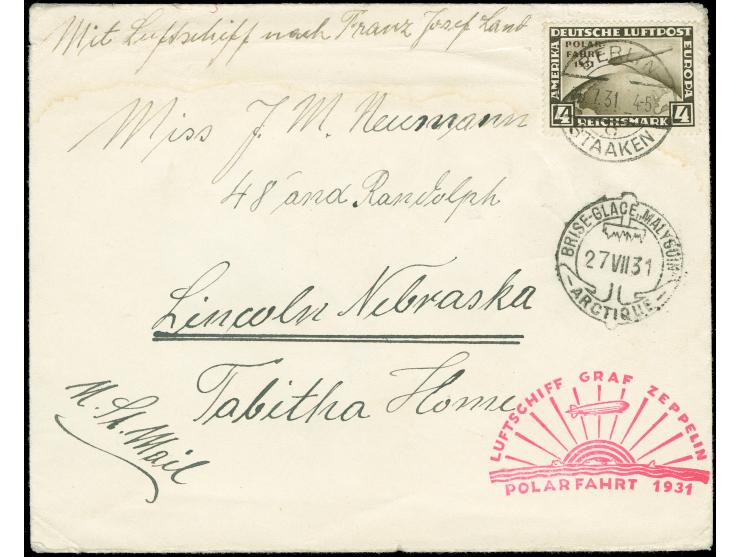 Mit Luftschiff nach Franz Josef Land
DEUTSCHE LUFTPOST
POLAR-
FAHRT
1931
AMERIKA
EUROPA
4 REICHSMARK 4
BERLIN
7.31. 4-5
STAAKEN
Miss J. M. Neumann
48 and Randolph
Lincoln Nebraska
Tabitha Home
BRISE-GLACE „MALYGUIN“
27 VII 31
ARCTIQUE
LUFTSCHIFF GRAF ZEPPELIN
POLARFAHRT 1931